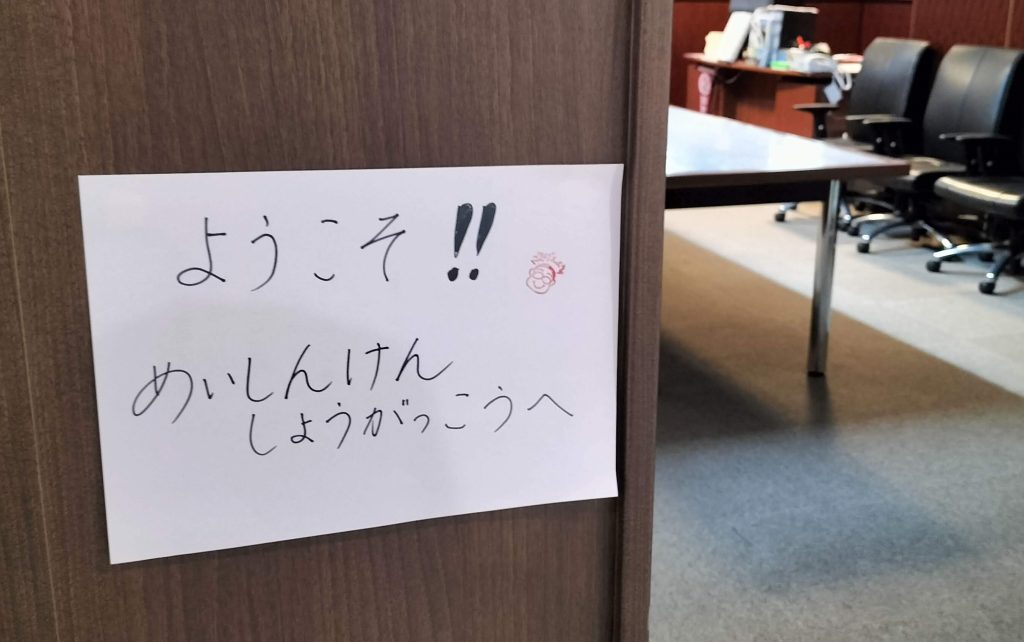 ようこそ!!
めいしんけん
しょうがっこうへ